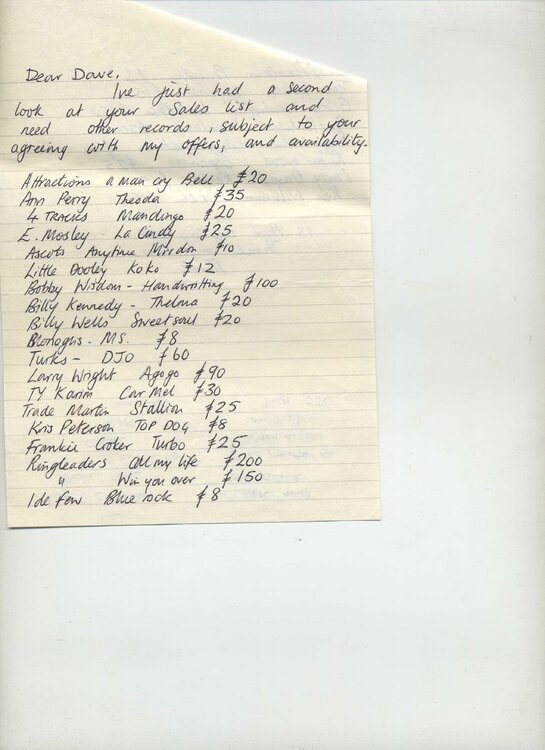 Dear Dave,
I've just had a second
look at your Sales list and
need other records, subject to your
agreeing with my offers, and availability.
Attractions a man cry Bell £20
Ann Perry Theoda £35
4 TRACKS Mandingo £20
E. Mosley - La Cindy £25
Ascots Anytime Mirdon £10
Little Dooley Koko £12
Bobby Wisdom - Handwritting £100
Billy Kennedy - Thelma £20
Billy Wells Sweetsoul £20
MS. £8
Turks - DJO £60
Larry Wright Agogo £90
TY Karim Car Mel £30
Trade Martin Stallion £25
Kris Peterson TOP DOG £8
Frankie Croker Turbo £25
Ringleaders All my life £200
" Win you over £150
Ide few Blue rock £8